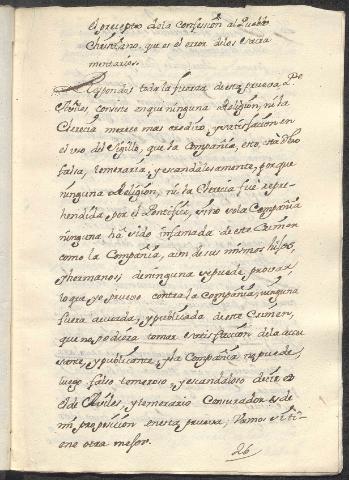 el precepto de la confession al Pueblo
Christiano, que es el error delos sacra
mentarios.
Respondo: toda la fuerza de esta prueva
consiste en que ninguna Religion, ni la
Clerecia merece mas credito, y satisfacion en
el uso del sigillo, que la Compañia, esto, està dho
falsa, temeraria, y escandalosamente, porque
ninguna Religion, ni la Clerecia fuè repre-
hendida por el Pontifice, sino sola Compañia
ninguna hà sido infamada de este Crimen
como la Compañia, aun de sus mismos hijos,
y hermanos; de ninguna se puede provar,
lo que yo pruevo contra la Compañia, ninguna
fuera acusada, y publicada de este Crimen,
que no pudiera tomar satisfaccion de la accu
sante, y publicante, y la Compañia no puede;
luego falso temeroso, y escandaloso
el de Aviles, y temerario Censurador es de
mi proposicion en esta prueva; Vamos
ene otra mejor.
26